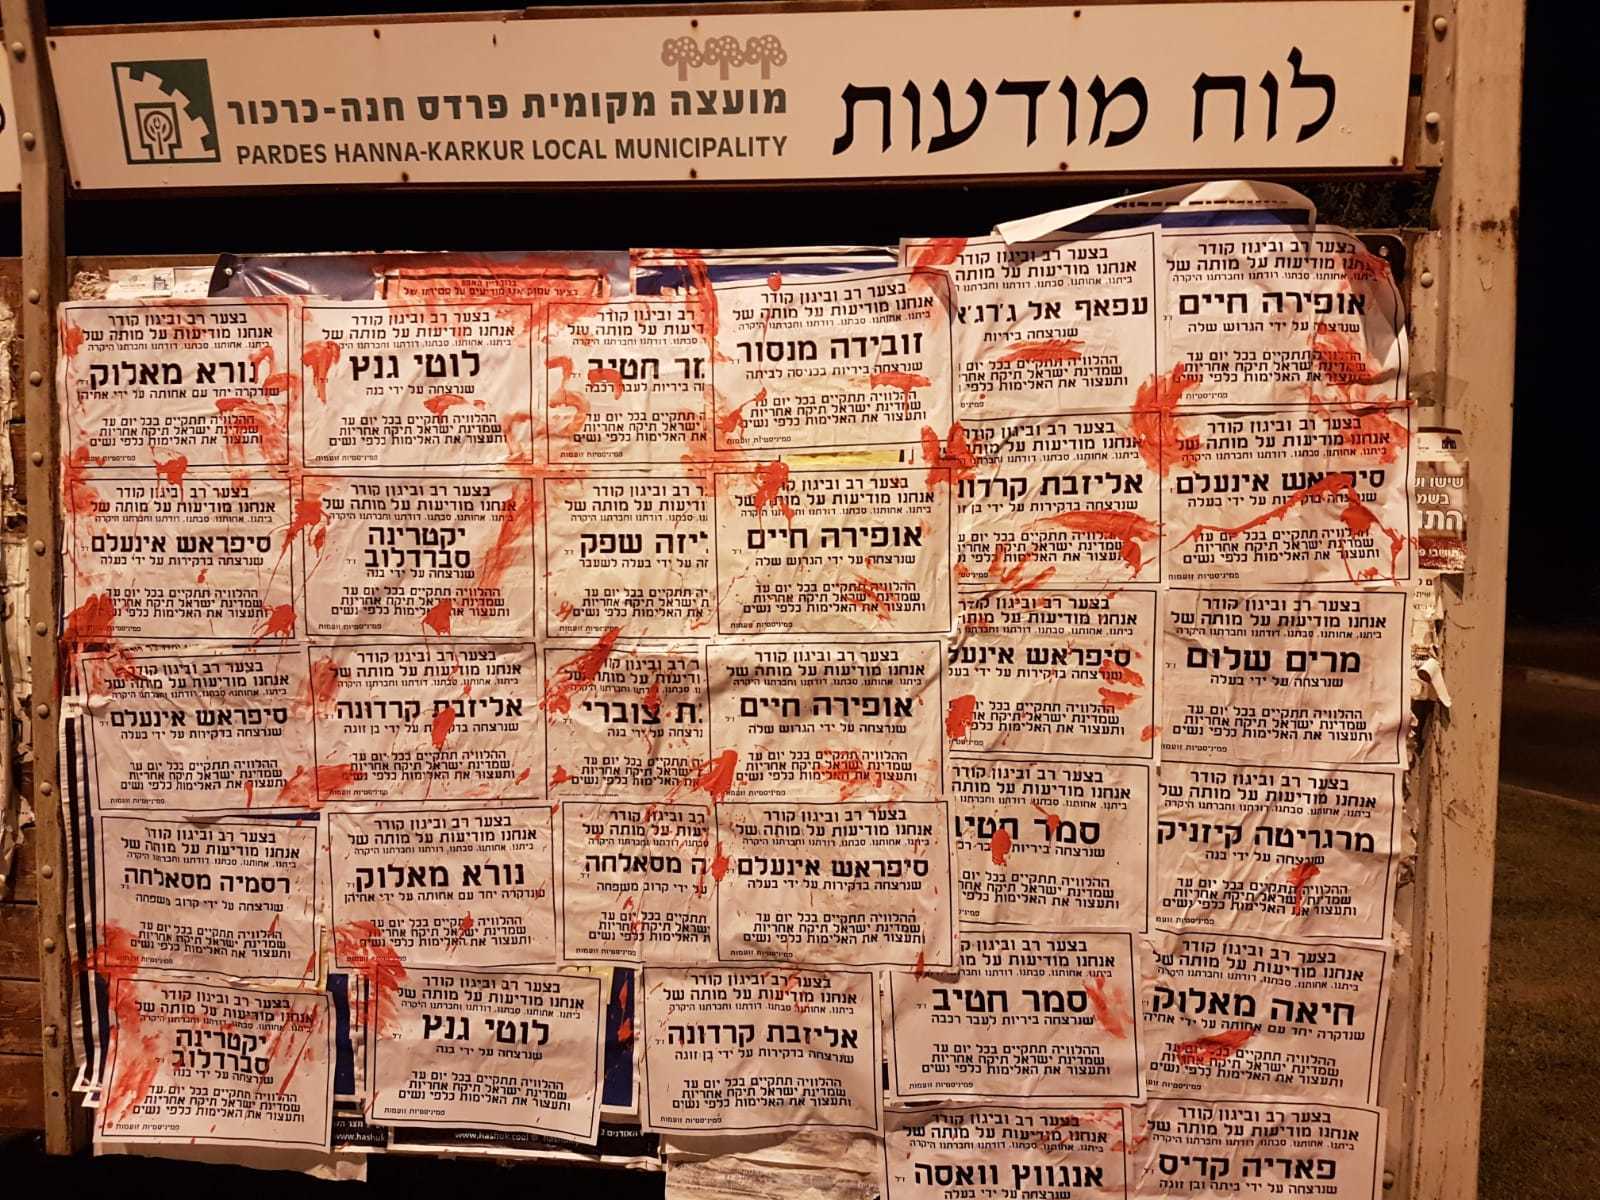 לוח מודעות
מועצה מקומית פרדס חנה-כרכור
PARDES HANNA-KARKUR LOCAL MUNICIPALITY
בצער רב וביגון קודר
אנחנו מודיעות על מותה של
ביתנו. אחותנו. סבתנו. דודתנו וחברתנו היקרה
אופירה חיים
שנרצחה על ידי הגרוש שלה
ההלוויה תתקיים בכל יום עד
שמדינת ישראל תיקח אחריות
ותעצור את האלימות כלפי נשים
בצער רב וביגון קודר
אנחנו מודיעות על מותה של
עפאף אל ג'רג'א
שנרצחה ביריות
ההלוויה תתקיים בכל יום עד
שמדינת ישראל תיקח אחריות
ותעצור את האלימות כלפי נשים
בצער רב וביגון קודר
אנחנו מודיעות על מותה של
ביתנו. אחותנו. סבתנו. דודתנו וחברתנו היקרה
זובידה מנסור ז"ל
שנרצחה ביריות בכניסה לביתה
ההלוויה תתקיים בכל יום עד
שמדינת ישראל תיקח אחריות
ותעצור את האלימות כלפי נשים
פמיניסטיות זועמות
רב וביגון קודר
דיעות על מותה של
חטיב
ה ביריות לעבר רכבה
תתקיים בכל יום עד
ישראל תיקח אחריות
את האלימות כלפי נשים
בצער רב וביגון קודר
אנחנו מודיעות על מותה של
ביתנו. אחותנו. סבתנו. דודתנו וחברתנו היקרה
לוטי גנץ ז"ל
שנרצחה על ידי בנה
ההלוויה תתקיים בכל יום עד
שמדינת ישראל תיקח אחריות
ותעצור את האלימות כלפי נשים
פמיניסטיות זועמות
בצער רב וביגון קודר
אנחנו מודיעות על מותה של
ביתנו. אחותנו. סבתנו. דודתנו וחברתנו היקרה
נורא מאלוק ז"ל
שנדקרה יחד עם אחותה על ידי אחיהן
ההלוויה תתקיים בכל יום עד
שמדינת ישראל תיקח אחריות
ותעצור את האלימות כלפי נשים
פמיניסטיות זועמות
בצער רב וביגון קודר
אנחנו מודיעות על מותה של
ביתנו. אחותנו. סבתנו. דודתנו וחברתנו היקרה
סיפראש אינעלם
שנרצחה בדקירות על ידי בעלה
פמיניסטיות זועמות
בצער רב וביגון קודר
אנחנו מודיעות על מותה של
אליזבת קרדונה
שנרצחה בדקירות על ידי בן זוגה
בצער רב וביגון קודר
אנחנו מודיעות על מותה של
אופירה חיים ז"ל
שנרצחה על ידי הגרוש שלה
ההלוויה תתקיים בכל יום עד
שמדינת ישראל תיקח אחריות
ותעצור את האלימות כלפי נשים
פמיניסטיות זועמות
שפק
על ידי בעלה לשעבר
בצער רב וביגון קודר
אנחנו מודיעות על מותה של
יקטרינה
סברדלוב ז"ל
שנרצחה על ידי בנה
ההלוויה תתקיים בכל יום עד
שמדינת ישראל תיקח אחריות
ותעצור את האלימות כלפי נשים
פמיניסטיות זועמות
בצער רב וביגון קודר
אנחנו מודיעות על מותה של
סיפראש אינעלם
שנרצחה בדקירות על ידי בעלה
ההלוויה תתקיים בכל יום עד
שמדינת ישראל תיקח אחריות
ותעצור את האלימות כלפי נשים
פמיניסטיות זועמות
בצער רב וביגון קודר
אנחנו מודיעות על מותה של
ביתנו. אחותנו. סבתנו. דודתנו וחברתנו היקרה
מרים שלום ז"ל
שנרצחה על ידי בעלה
ההלוויה תתקיים בכל יום עד
שמדינת ישראל תיקח אחריות
ותעצור את האלימות כלפי נשים
פמיניסטיות זועמות
בצער רב וביגון קודר
אנחנו מודיעות על מותה של
סיפראש אינעלם
שנרצחה בדקירות על ידי בעלה
ההלוויה תתקיים בכל יום עד
שמדינת ישראל תיקח אחריות
ותעצור את האלימות כלפי נשים
בצער רב וביגון קודר
אנחנו מודיעות על מותה של
אופירה חיים ז"ל
שנרצחה על ידי הגרוש שלה
ההלוויה תתקיים בכל יום עד
שמדינת ישראל תיקח אחריות
ותעצור את האלימות כלפי נשים
צוברי
בצער רב וביגון קודר
אנחנו מודיעות על מותה של
אליזבת קרדונה
שנרצחה בדקירות על ידי בן זוגה
ההלוויה תתקיים בכל יום עד
שמדינת ישראל תיקח אחריות
ותעצור את האלימות כלפי נשים
בצער רב וביגון קודר
אנחנו מודיעות על מותה של
סיפראש אינעלם
שנרצחה בדקירות על ידי בעלה
ההלוויה תתקיים בכל יום עד
שמדינת ישראל תיקח אחריות
ותעצור את האלימות כלפי נשים
פמיניסטיות זועמות
בצער רב וביגון קודר
אנחנו מודיעות על מותה של
מרגריטה קיזניק
שנרצחה על ידי בנה
ההלוויה תתקיים בכל יום עד
שמדינת ישראל תיקח אחריות
ותעצור את האלימות כלפי נשים
בצער רב וביגון קודר
אנחנו מודיעות על מותה של
סמר חטיב
ההלוויה תתקיים בכל יום עד
שמדינת ישראל תיקח אחריות
ותעצור את האלימות כלפי נשים
בצער רב וביגון קודר
אנחנו מודיעות על מותה של
סיפראש אינעלם ז"ל
שנרצחה בדקירות על ידי בעלה
ההלוויה תתקיים בכל יום עד
שמדינת ישראל תיקח אחריות
ותעצור את האלימות כלפי נשים
פמיניסטיות זועמות
ה מסאלחה
על ידי קרוב משפחה
בצער רב וביגון קודר
אנחנו מודיעות על מותה של
נורא מאלוק ז"ל
שנדקרה יחד עם אחותה על ידי אחיהן
ההלוויה תתקיים בכל יום עד
שמדינת ישראל תיקח אחריות
ותעצור את האלימות כלפי נשים
בצער רב וביגון קודר
אנחנו מודיעות על מותה של
רסמיה מסאלחה ז"ל
שנרצחה על ידי קרוב משפחה
ההלוויה תתקיים בכל יום עד
שמדינת ישראל תיקח אחריות
ותעצור את האלימות כלפי נשים
בצער רב וביגון קודר
אנחנו מודיעות על מותה של
חיאה מאלוק
שנדקרה יחד עם אחותה על ידי אחיה
ההלוויה תתקיים בכל יום עד
שמדינת ישראל תיקח אחריות
ותעצור את האלימות כלפי נשים
בצער רב וביגון קודר
אנחנו מודיעות על מותה של
סמר חטיב ז"ל
שנרצחה ביריות לעבר רכבה
ההלוויה תתקיים בכל יום עד
שמדינת ישראל תיקח אחריות
ותעצור את האלימות כלפי נשים
פמיניסטיות זועמות
בצער רב וביגון קודר
אנחנו מודיעות על מותה של
אליזבת קרדונה ז"ל
שנרצחה בדקירות על ידי בן זוגה
ההלוויה תתקיים בכל יום עד
שמדינת ישראל תיקח אחריות
ותעצור את האלימות כלפי נשים
פמיניסטיות זועמות
בצער רב וביגון קודר
אנחנו מודיעות על מותה של
לוטי גנץ ז"ל
שנרצחה על ידי בנה
ההלוויה תתקיים בכל יום עד
שמדינת ישראל תיקח אחריות
ותעצור את האלימות כלפי נשים
פמיניסטיות זועמות
בצער רב וביגון קודר
אנחנו מודיעות על מותה של
יקטרינה
סברדלוב ז"ל
שנרצחה על ידי בנה
ההלוויה תתקיים בכל יום עד
שמדינת ישראל תיקח אחריות
ותעצור את האלימות כלפי נשים
פמיניסטיות זועמות
בצער רב וביגון קודר
אנחנו מודיעות על מותה של
ביתנו. אחותנו. סבתנו. דודתנו וחברתנו היקרה
פאדיה קדיס ז"ל
שנרצחה על ידי ביתה ובן זוגה
בצער רב וביגון קודר
אנחנו מודיעות על מותה של
ביתנו. אחותנו. סבתנו. דודתנו וחברתנו היקרה
אנגווץ וואסה ז"ל
שנרצחה על ידי בעלה
www.hashuk
www.hashuk.cool